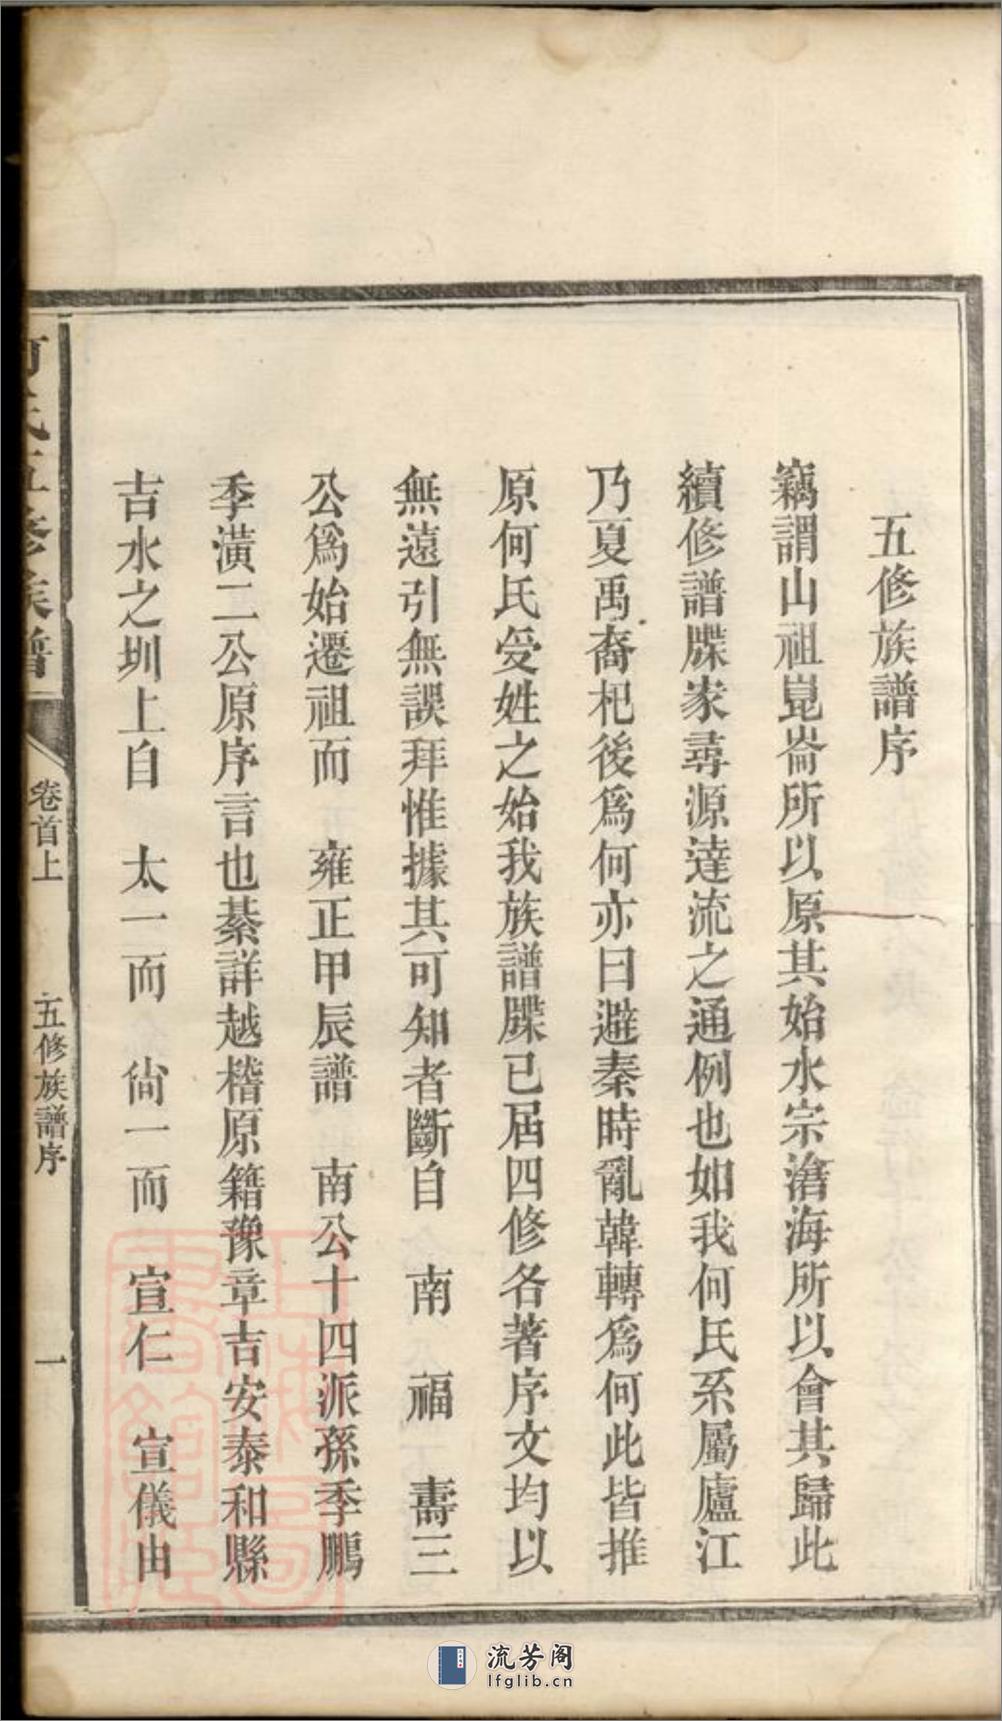 五修族譜序
竊謂山祖崑崙所以原其始水宗滄海所以會其歸此
續修譜牒家尋源達流之通例也如我何氏系屬廬江
乃夏禹裔杞後爲何亦曰避秦時亂韓轉爲何此皆推
原何氏受姓之始我族譜牒已屆四修各著序文均以
無遠引無誤拜惟據其可知者斷自 南 福 壽三
公爲始遷祖而 雍正甲辰譜 南公十四派孫季鵬
季潢二公原序言也綦詳越稽原籍豫章吉安泰和縣
吉水之圳上自 太一而 尙一而 宣仁 宣儀由
何氏五修族譜
卷首上
五修族譜序
一
流芳阁
lfglib.cn